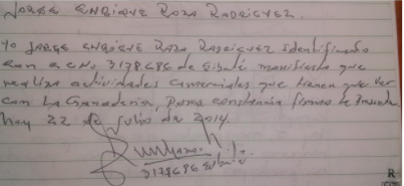 JORGE ENRIQUE ROZO RODRIGUEZ.
Yo JORGE ENRIQUE ROZO RODRIGUEZ identificado
con CNo 3178686 de Sibaté manifiesto que
realizo actividades comerciales que tienen que ver
con La Ganaderia, para constancia firmo la presente
hoy 22 de Julio de 2014.
3178686 Sibaté.
R